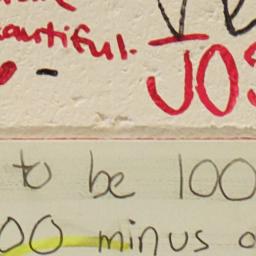 beautiful.
JOS
to be 100
00 minus